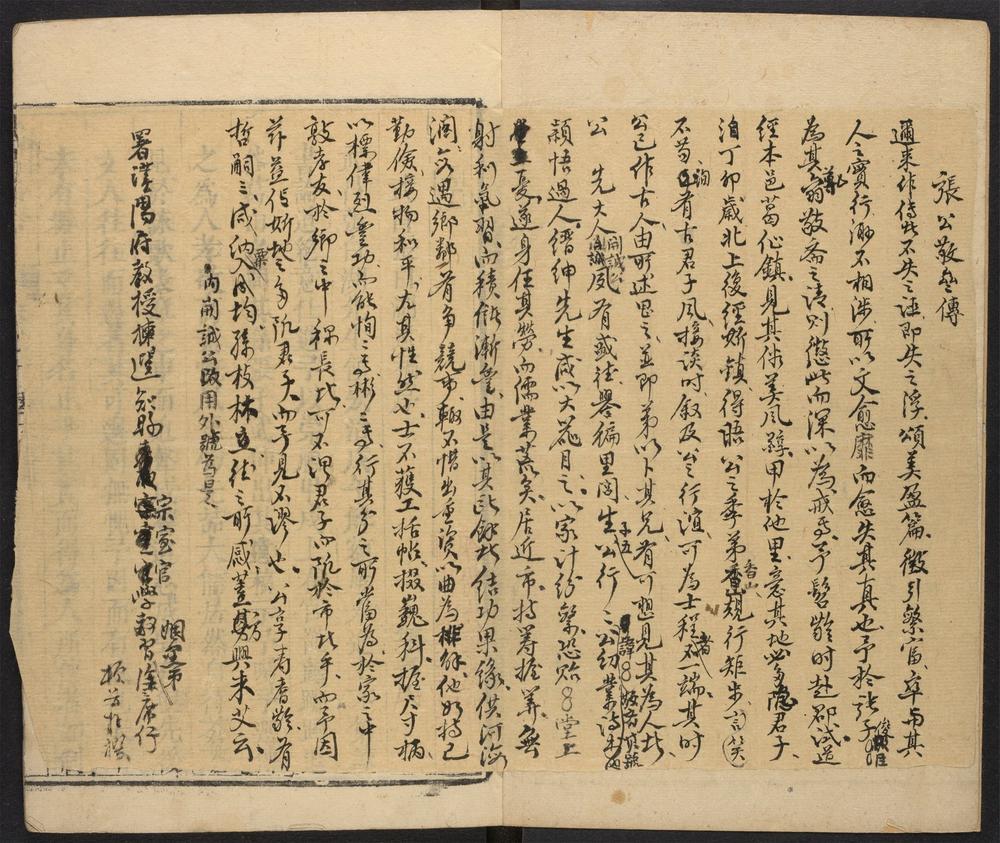 張公敬叄傳
邇來作傳者不失之誣即失之浮頌美盈篇徵引繁富卒与其
人之實行渺不相涉所以文愈靡而愈失其真也予於張子
為其翁敬斎之請則慫此而深以為戒焉予髫齡时赴郡試道
經本邑葛仙鎮見其俗美風醇甲於他里意其地必多隱君子
洎丁卯歲北上後經斯鎮得晤公之季弟香山規行矩步言笑
不苟洵有古君子風接談时叙及公之行誼可為士程者不一端其时
公已作古人由所述思之並即弟以卜其兄有可想見其為人者
公 先大人開誠公夙有盛德譽徧里閭生子五公行二公幼業詩書
穎悟過人縉紳先生咸以大器目之以家計紛繁恐貽堂上
憂遂身任其勞而儒業荒矣居近市持籌握算無
射利氣習而積餘漸豐由是以其餘者結功果緣供河海
潤每遇鄉鄰有角競市輒不惜出重資以曲為排解他如持己
勤儉接物和平尤其性然也士不獲工括帖掇巍科握尺寸柄
以標偉烈豐功而能恂恂焉彬彬焉行其分之所當為於家之中
敦孝友於鄉之中稱長者可不謂君子而隱於市者乎而予因
茲益信斯地之多隱君子而予見不謬也公享壽耆齡有
哲嗣三咸納入成均孫枝林立德之所感蓋方興未艾云
內開誠公改用外號為是
署澧陽府教授揀選知縣宗室官學教習
姻愚弟
席行
頓首拜撰